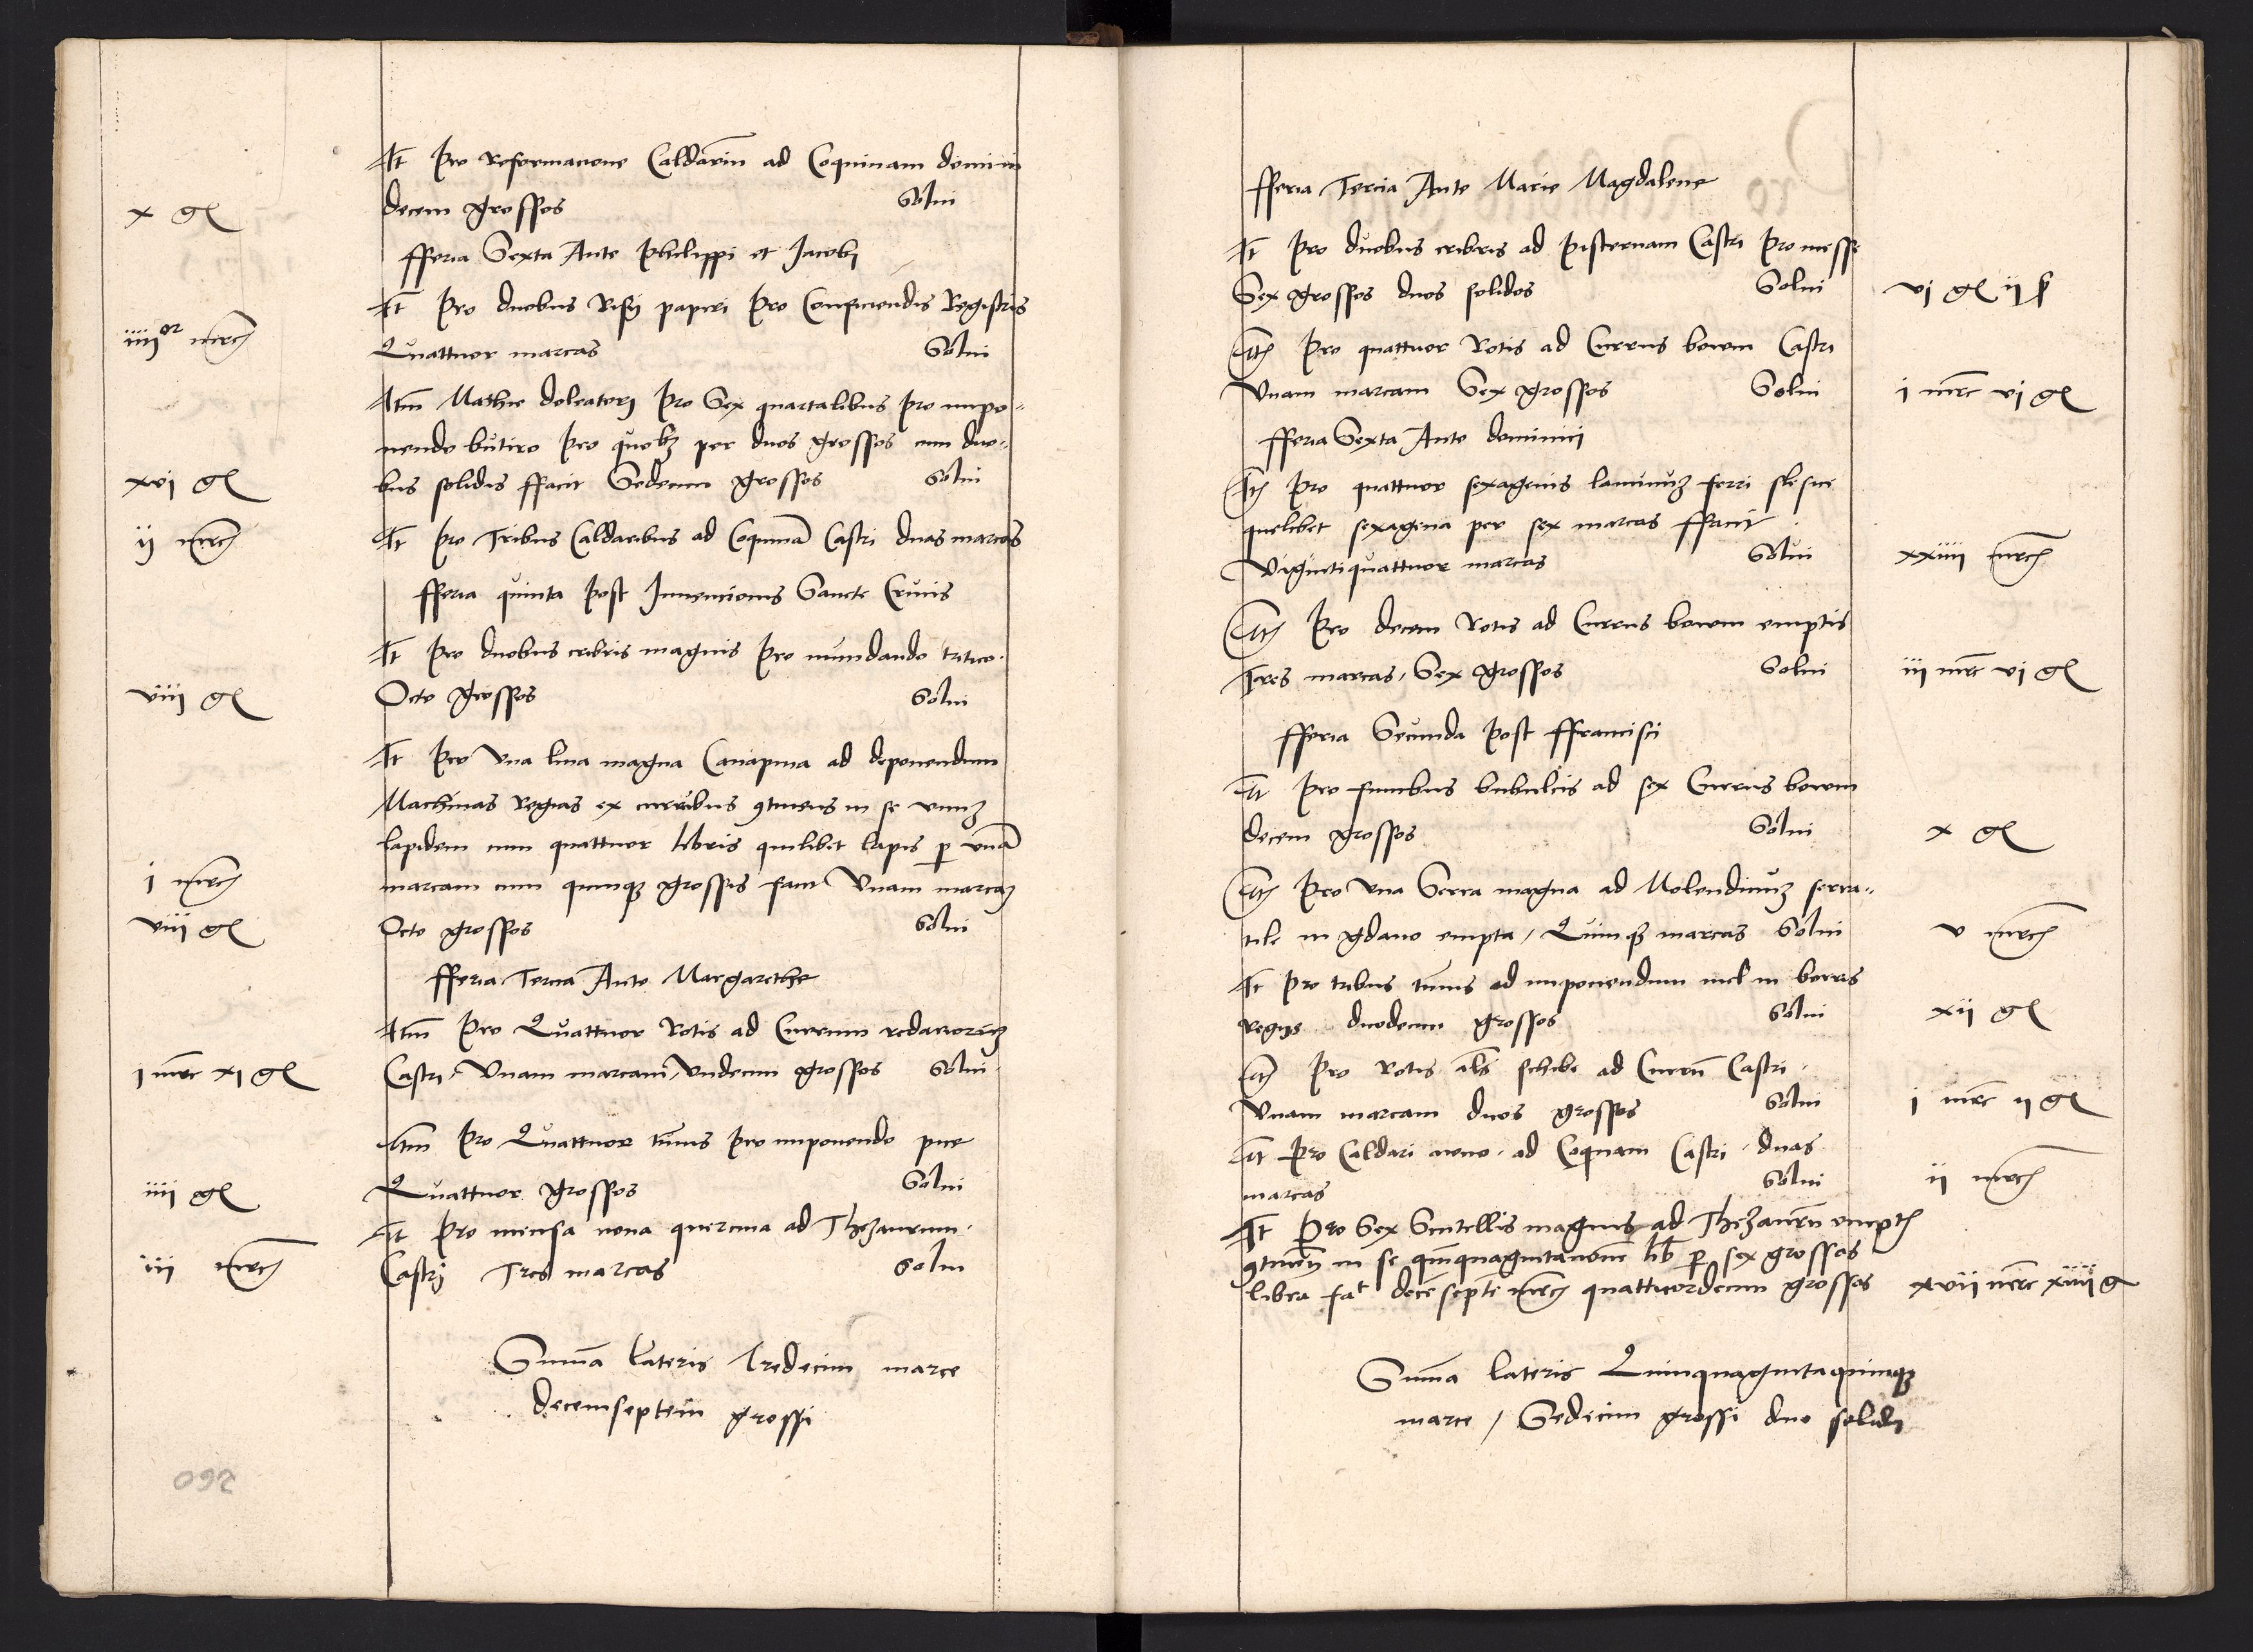 It Pro Reformacione Caldarin ad Coquinam domini
x gl decem grossos Solui
fferia Sexta Ante Philippi et Jacobi
It Pro duobus Risis papiri Pro Conficiendis Registris
iiii or mrc Quattuor marcas Solui
Itm Mathie doleatori Pro Sex quartalibus pro impo-
nendo butiro Pro quobz per duos grossos cum duo-
xvi gl bus solidis ffacit Sedecim grossos Solui
ii mrc It Pro Tribus Caldaribus ad Coquinā Castri duas marcas
fferia quinta Post Invencionis Sancte Crucis
It Pro duobus cribris magnis Pro mundando tritico
viii gl Octo grossos Solui
It Pro Una lina magna Canapina ad deponendum
Machinas Regias ex curribus 9tinens in se unuz
lapidem cum quattuor libris quilibet lapis p unā
i mrc marcam cum quinqz grossis facit Unam marcaz
viii gl Octo grossos Solui
fferia Tercia Ante Margarethe
Itm Pro Quattuor Rotis ad Currum
i mrc xi gl Castri Unam marcam Undecim grossos Solui
Itm Pro Quattuor tunis Pro imponendo pice
iiii gl Quattuor grossos Solui
It Pro mensa nova quercina ad Thezaurum
iii mrc Castri Tres marcas Solui
Summa lateris Tredecim marce
decemseptem grossi
260
fferia Tercia Ante Marie Magdalene
It Pro duobus cribris ad pistrinam Castri Pro messe
Sex grossos duos solidos Solui vi gl ii s
Itm Pro quattuor Rotis ad Currus boum Castri
Unam marcam Sex grossos Solui i mrc vi gl
fferia Sexta Ante dominici
Itm Pro quattuor sexagenis laminuz ferri slesin
quelibet sexagena per sex marcas ffacit
Vigintiquattuor marcas Solui xxiiii mrc
Itm Pro decem Rotis ad Currus boum emptis
Tres marcas, Sex grossos Solui iii mrc vi gl
fferia Secunda Post ffrancisci
It Pro funibus bubulcis ad sex Currus boum
decem grossos Solui x gl
Itm Pro Una Serra magna ad Molendinuz serra-
tile in gdano empta / Quinqz marcas Solui v mrc
It Pro tribus tunis ad imponendum mel in borris
Regiis duodecim grossos Solui xii gl
Itm Pro Rotis als schibe ad Currū Castri
Unam marcam duos grossos Solui i mrc ii gl
It Pro Caldari novo ad Coquinam Castri duas
marcas Solui ii mrc
It Pro Sex Scutellis magnis ad Thezaurū empt
9tinen in se quinquagintanovē lib p sex grossos
libra fat decē septē mrc quattuordecim grossos xvii mrc xiiii g
Summa lateris Quinquagintaquinqz
marce / Sedecim grossi duo solidi